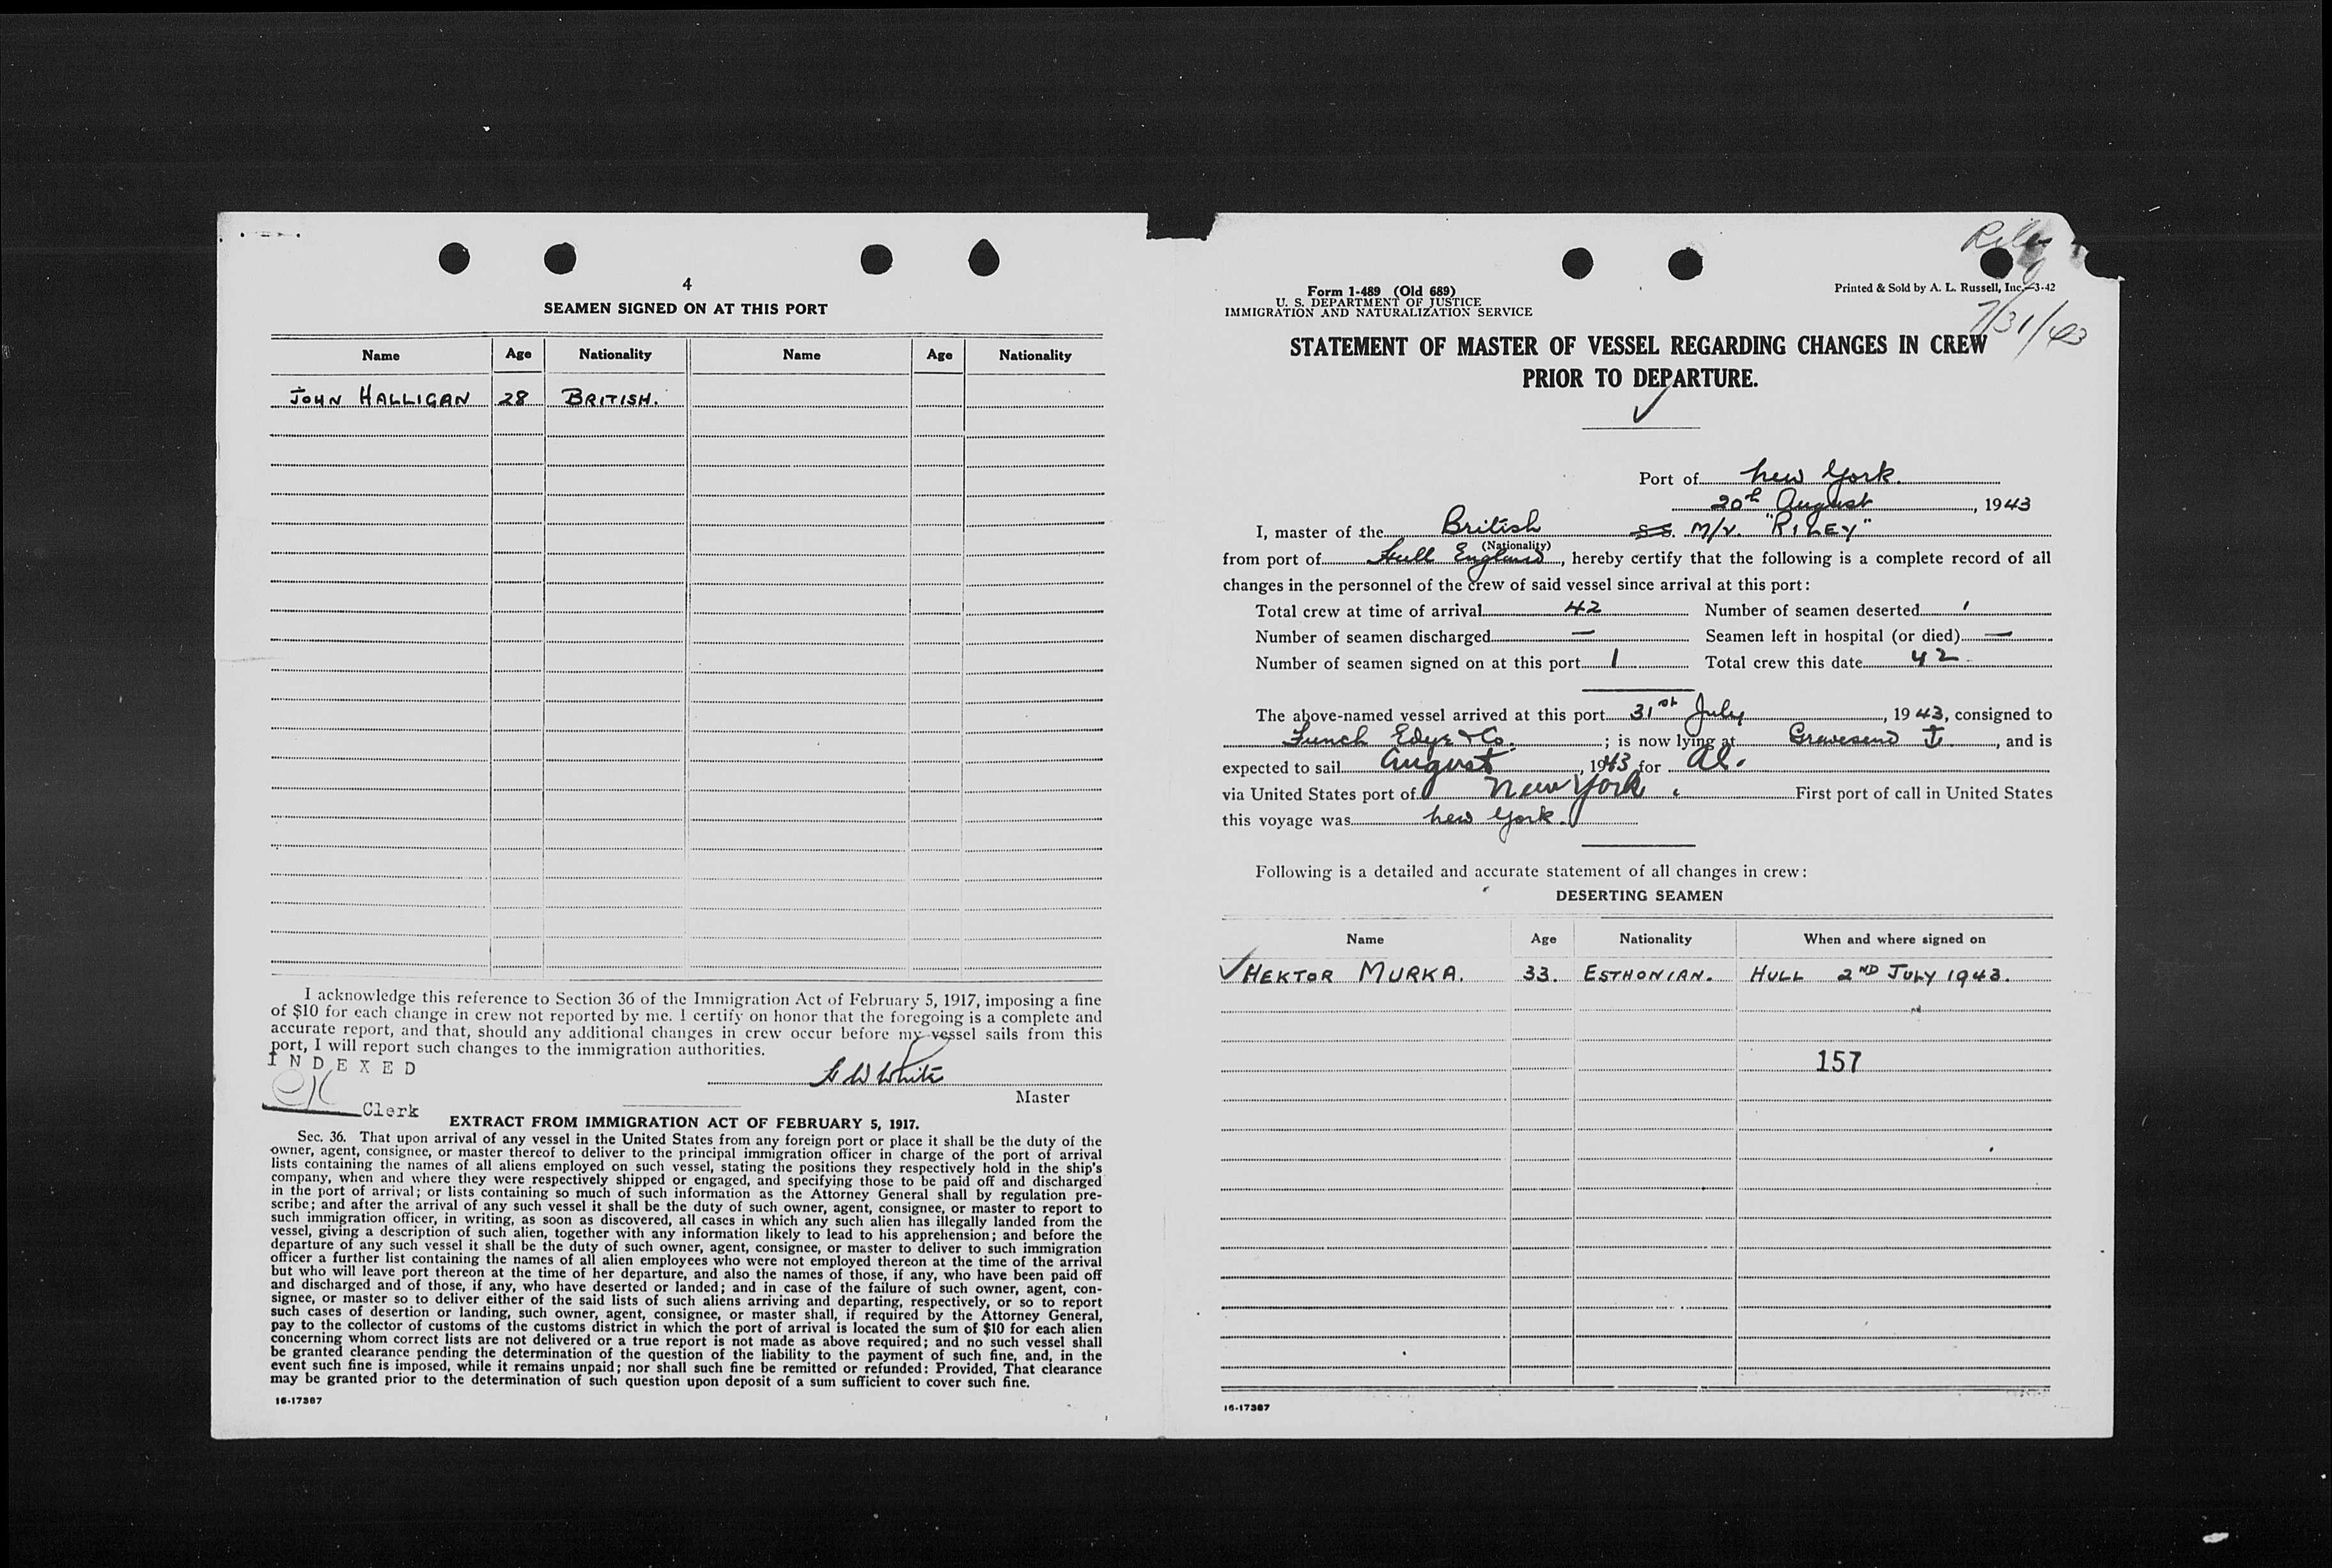 4
SEAMEN SIGNED ON AT THIS PORT
Name Age Nationality Name Age Nationality
JOHN HALLIGAN 28 BRITISH.
I acknowledge this reference to Section 36 of the Immigration Act of February 5, 1917, imposing a fine
of $10 for each change in crew not reported by me. I certify on honor that the foregoing is a complete and
accurate report, and that, should any additional changes in crew occur before my vessel sails from this
port, I will report such changes to the immigration authorities.
INDEXED
White
Master
Clerk
EXTRACT FROM IMMIGRATION ACT OF FEBRUARY 5, 1917.
Sec. 36. That upon arrival of any vessel in the United States from any foreign port or place it shall be the duty of the
owner, agent, consignee, or master thereof to deliver to the principal immigration officer in charge of the port of arrival
lists containing the names of all aliens employed on such vessel, stating the positions they respectively hold in the ship's
company, when and where they were respectively shipped or engaged, and specifying those to be paid off and discharged
in the port of arrival; or lists containing so much of such information as the Attorney General shall by regulation pre-
scribe; and after the arrival of any such vessel it shall be the duty of such owner, agent, consignee, or master to report to
such immigration officer, in writing, as soon as discovered, all cases in which any such alien has illegally landed from the
vessel, giving a description of such alien, together with any information likely to lead to his apprehension; and before the
departure of any such vessel it shall be the duty of such owner, agent, consignee, or master to deliver to such immigration
officer a further list containing the names of all alien employees who were not employed thereon at the time of the arrival
but who will leave port thereon at the time of her departure, and also the names of those, if any, who have been paid off
and discharged and of those, if any, who have deserted or landed; and in case of the failure of such owner, agent, con-
signee, or master so to deliver either of the said lists of such aliens arriving and departing, respectively, or so to report
such cases of desertion or landing, such owner, agent, consignee, or master shall, if required by the Attorney General,
pay to the collector of customs of the customs district in which the port of arrival is located the sum of $10 for each alien
concerning whom correct lists are not delivered or a true report is not made as above required; and no such vessel shall
be granted clearance pending the determination of the question of the liability to the payment of such fine, and, in the
event such fine is imposed, while it remains unpaid; nor shall such fine be remitted or refunded: Provided, That clearance
may be granted prior to the determination of such question upon deposit of a sum sufficient to cover such fine.
16-17387
Form 1-489 (Old 689)
U. S. DEPARTMENT OF JUSTICE
IMMIGRATION AND NATURALIZATION SERVICE
Printed & Sold by A. L. Russell, Inc.—3-42
7/31/43
STATEMENT OF MASTER OF VESSEL REGARDING CHANGES IN CREW
PRIOR TO DEPARTURE.
Port of New York.
20th August, 1943
I, master of the British S.S. M/V. "RILEY"
(Nationality)
from port of Hull England, hereby certify that the following is a complete record of all
changes in the personnel of the crew of said vessel since arrival at this port:
Total crew at time of arrival 42 Number of seamen deserted 1
Number of seamen discharged — Seamen left in hospital (or died) —
Number of seamen signed on at this port 1 Total crew this date 42
The above-named vessel arrived at this port 31st July, 1943, consigned to
Funch Edye & Co.; is now lying at Gravesend, and is
expected to sail August, 1943 for
via United States port of New York. First port of call in United States
this voyage was New York.
Following is a detailed and accurate statement of all changes in crew:
DESERTING SEAMEN
Name Age Nationality When and where signed on
HEKTOR MURKA. 33. ESTHONIAN. HULL 2ND JULY 1943.
157
16-17387